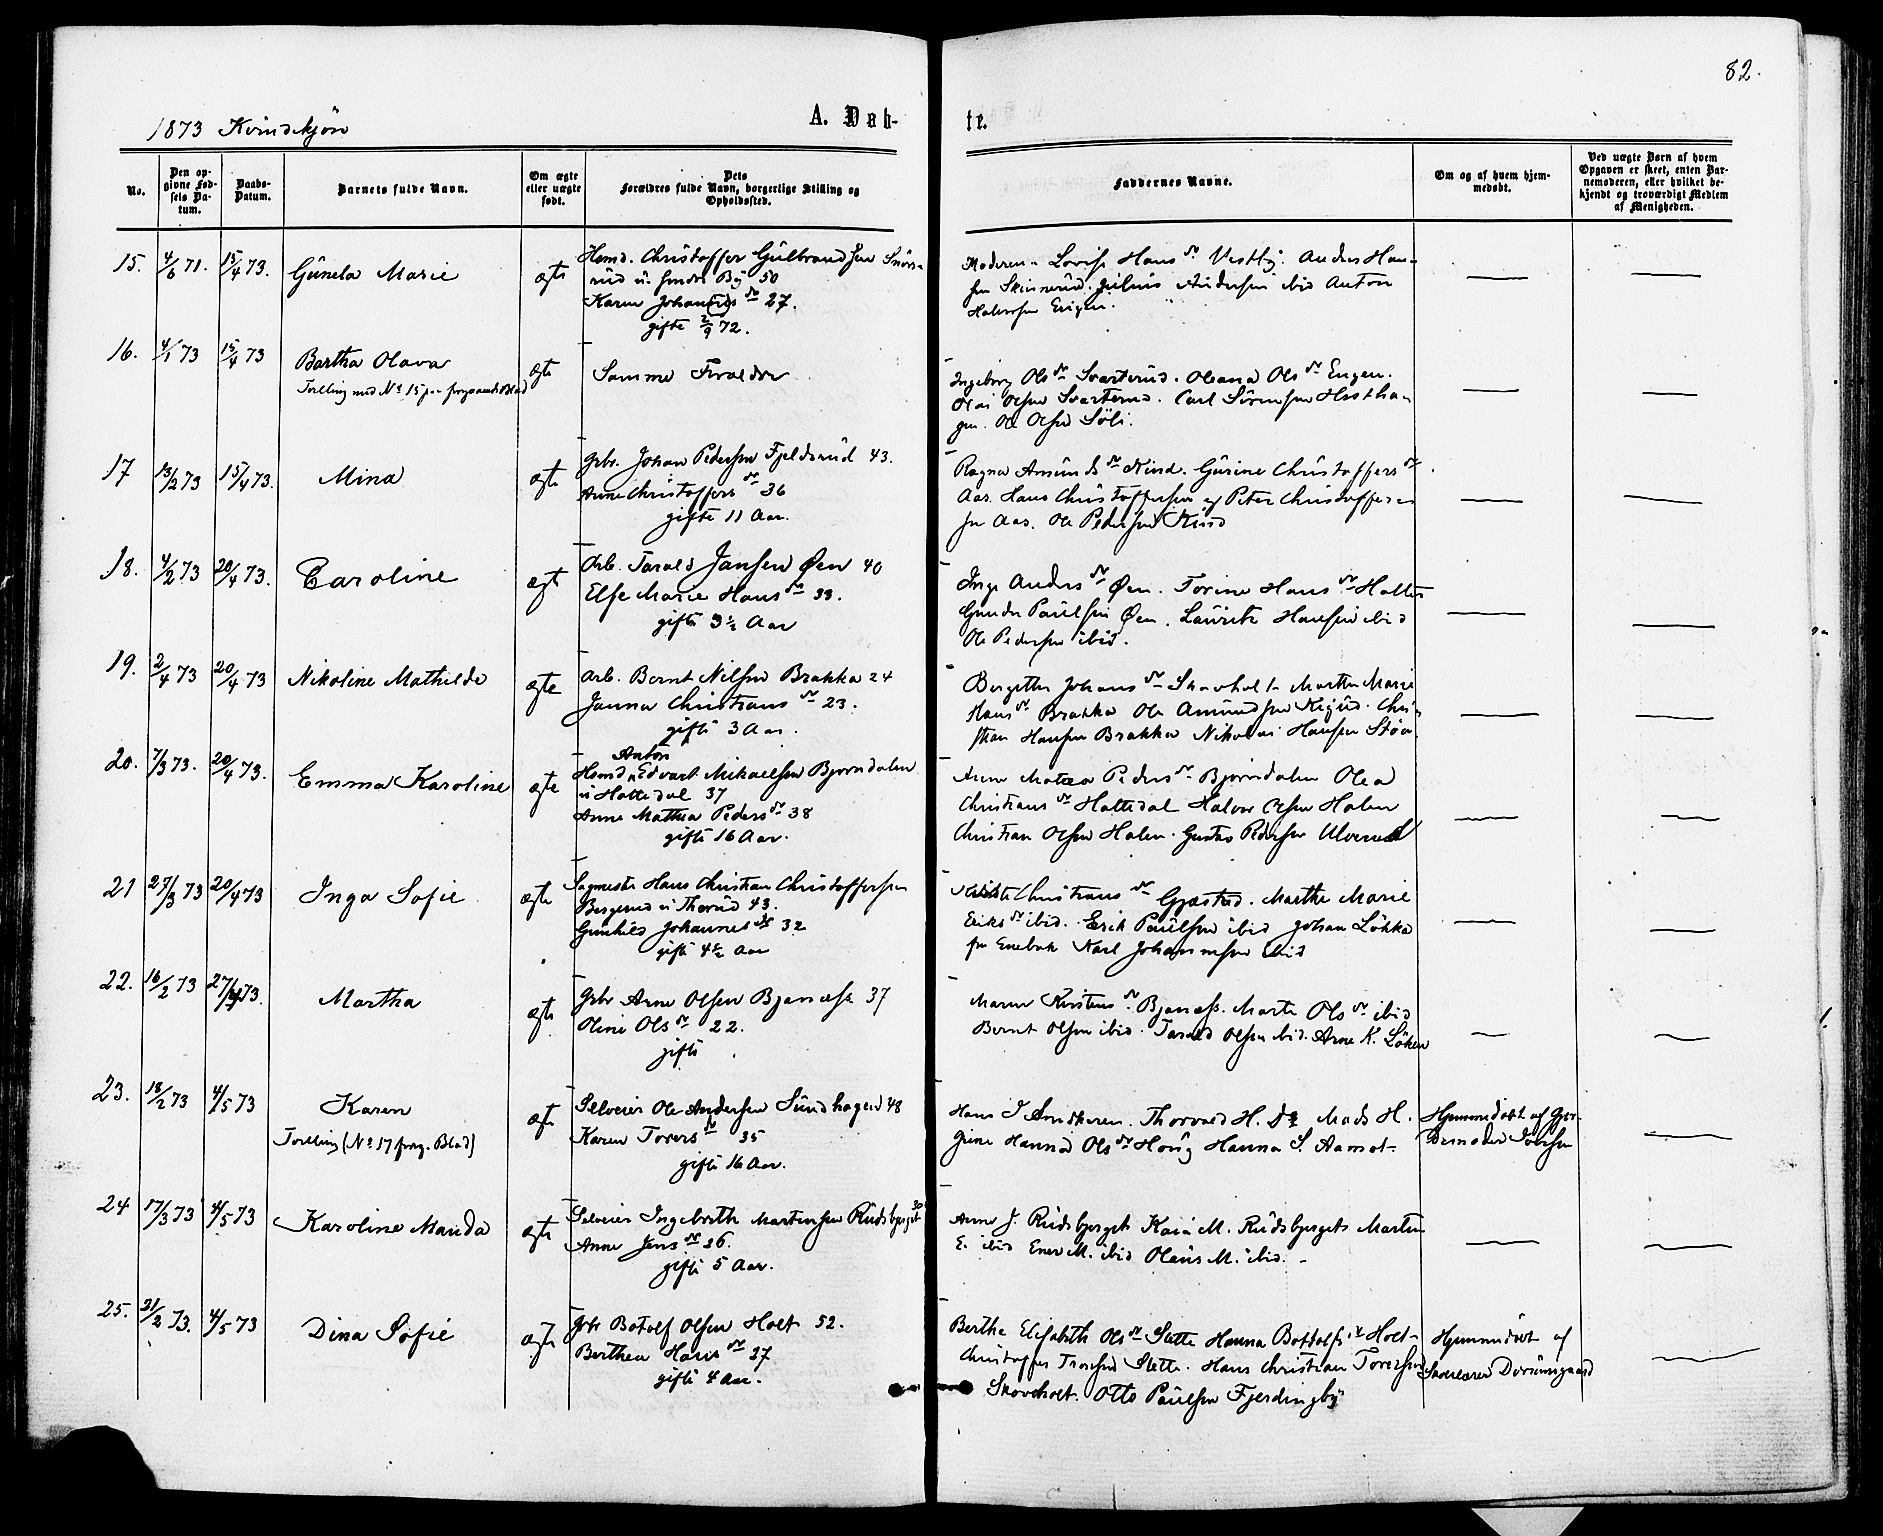 82.
1873 Kvindekjøn
A. Døb-
te.
No.
Den op-
givne Fød-
sels Da-
tum.
Daabs-
Datum.
Barnets fulde Navn.
Om ægte
eller uægte
født.
Dets
Forældres fulde Navn, borgerlige Stilling og
Opholdssted.
Faddernes Navne.
Om og af hvem hjem-
medøbt.
Ved uægte Børn af hvem
Opgaven er skeet, enten Bar-
nemoderen, eller hvilket be-
kjendt og troværdigt Medlem
af Menigheden.
15. 4/6 71. 15/4 73. Gunela Marie ægte
Hsmd. Christoffer Gulbrandsen
50
Karen Johannes dr 27.
gifte 2/9 72.
Moderen Lovise Hans dr Vestby. Anders Han-
sen Julius Andersen ibid Anton
Halvorsen Engen.
16. 4/1 73 15/4 73 Bertha Olava ægte
Tvilling med No 15 paa foregaaende Blad
Samme Forældre
Ingeborg Ols dr Svarterud. Oleana Ols dr Engen.
Olai Olsen Svarterud. Carl Sörensen Hestha-
gen. Ole Olsen Söli.
17 13/2 73 15/4 73. Mina ægte
Gbr. Johan Pedersen Fjeldsrud 43.
Anne Christoffers dr 36
gifte 11 Aar.
Ragna Amunds dr Kind. Gurine Christoffers dr
Aas. Hans Christoffersen og Peter Christoffer-
sen Aas. Ole Pedersen Kind
18. 4/2 73 20/4 73. Caroline ægte
Arb. Tarald Jansen Øen 40
Else Marie Hans dr 33.
gifte 3 1/2 Aar
Inge Anders dr Øen. Torine Hans dr
Gunder Paulsen Øen. Lauritz Hansen ibid
Ole Pedersen ibid.
19. 2/4 73 20/4 73 Nikoline Mathilde ægte
Arb. Bernt Nilsen Brakka 24
Janna Christians dr 23.
gifte 3 Aar.
Bergethe Johans dr Skovholt Marthe Marie
Hans dr Brakka Ole Amundsen Chri-
stian Hansen Brakka Nikolai Hansen
20. 7/3 73. 20/4 73. Emma Karoline ægte
Anton
Hsmd Edvart Mikaelsen Bjørndalen
u Hattedal 37
Anne Mathea Peders dr 38
gifte 16 Aar.
Anne Mathea Peders dr Bjørndalen Olea
Christians dr Hattedal Halvor Olsen Holen
Christian Olsen Holen. Gustav Pedersen Ulverud
21 27/3 73 20/4 73 Inga Sofie ægte
Sagmester Hans Christian Christoffersen
Bergerud u Thorud 43.
Gunhild Johannes dr 32
gifte 4 1/2 Aar
Christians dr Gjæstad. Marthe Marie
Eriks dr ibid. Erik Paulsen ibid Johan Løkka
fra Enebak Karl Johannessen ibid
22. 16/2 73 27/4 73. Martha ægte
Gbr Arne Olsen Bjanæs 37
Oline Ols dr 22.
gifte
Maren Kristens dr Bjanæs. Marte Ols dr ibid
Bernt Olsen ibid. Tarald Olsen ibid. Arne K. Løken
23. 18/2 73 4/5 73 Karen ægte
Tvilling (No 17 foreg. Blad)
Selveier Ole Andersen Sundhagen 48
Karen Torers dr 35
gifte 16 Aar.
Hans J Thorvald H. Mads H.
Hanna Ols dr Houg Hanna S. Aamot
Hjemmedøbt af Gjor-
demoder Iversen
24 17/3 73 4/5 73 Karoline Manda ægte
Selveier Ingebreth Martinsen Rudsbjerget 30
Anne Jens dr 26.
gifte 5 Aar.
Anne J. Rudsbjerget Kaia M. Rudsbjerget Martin
E. ibid Ener M. ibid Olaus M. ibid.
25. 21/2 73. 4/5 73 Dina Sofie ægte
Gbr Botolf Olsen Holt 52.
Berthea Hans dr 27
gifte 4 Aar.
Berthe Elisabeth Ols dr Slette Hanna Bottolfs dr Holt
Christoffer Slette. Hans Christian Torersen
Skovholt. Otto Paulsen Fjerdingby
Hjemmedøbt af